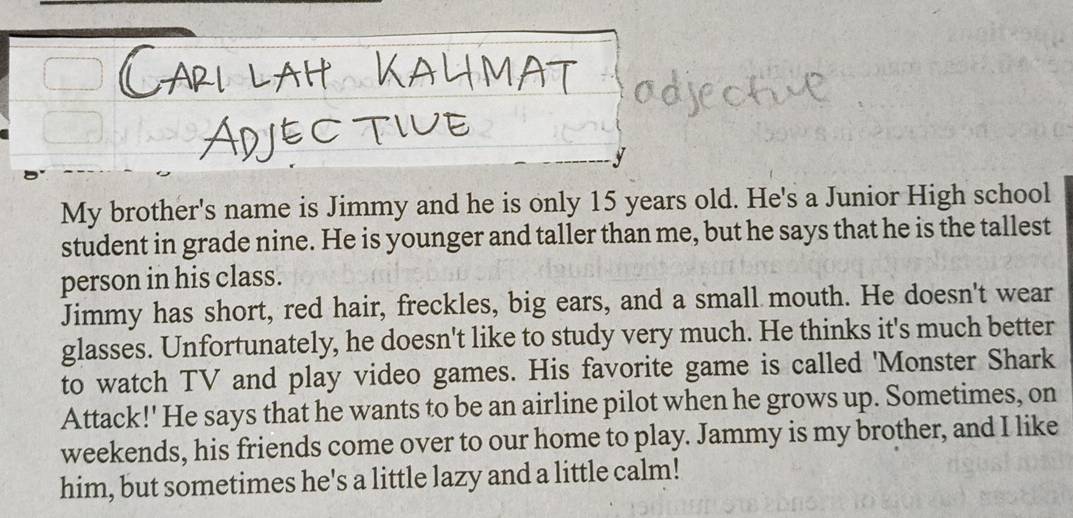 CARILAH KALIMAT
ADJECTIVE
adjective
My brother's name is Jimmy and he is only 15 years old. He's a Junior High school
student in grade nine. He is younger and taller than me, but he says that he is the tallest
person in his class.
Jimmy has short, red hair, freckles, big ears, and a small mouth. He doesn't wear
glasses. Unfortunately, he doesn't like to study very much. He thinks it's much better
to watch TV and play video games. His favorite game is called 'Monster Shark
Attack!' He says that he wants to be an airline pilot when he grows up. Sometimes, on
weekends, his friends come over to our home to play. Jammy is my brother, and I like
him, but sometimes he's a little lazy and a little calm!